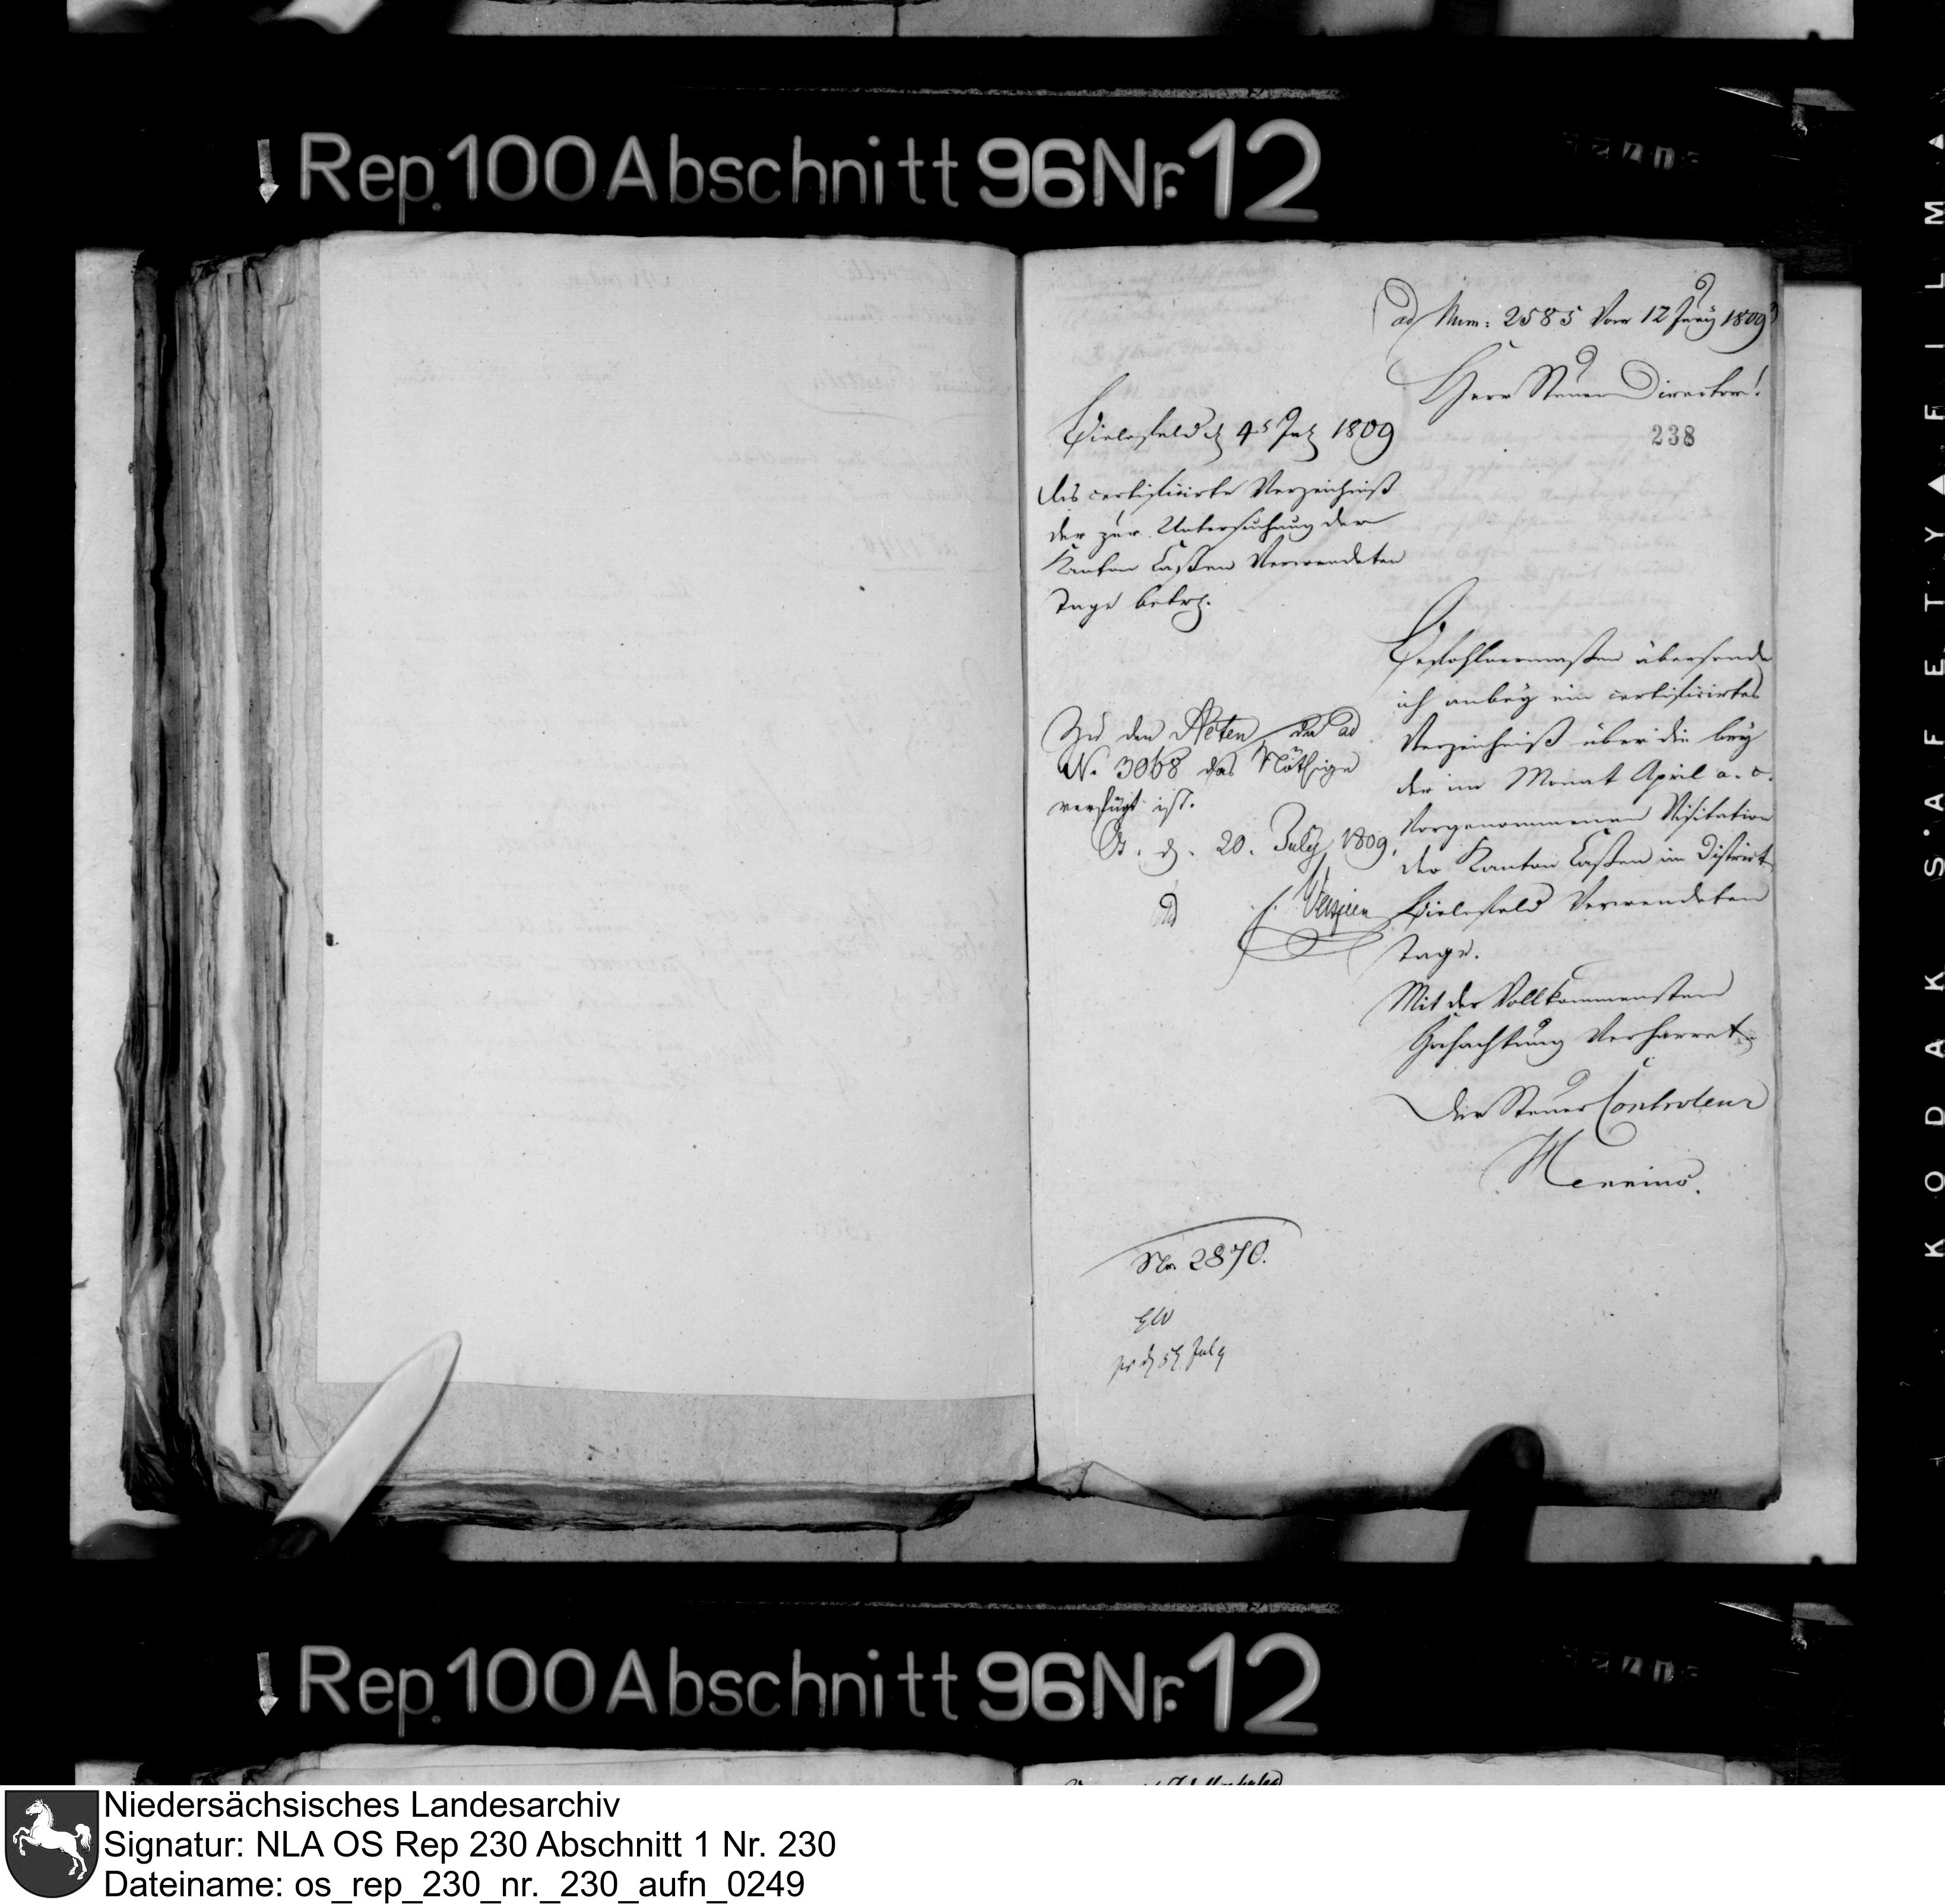 Rep. 100 Abschnitt 96 Nr. 12
ad Num: 2585 vom 12 Juny 1809
Herr Steuer Director!
238
Bielefeld d 4t July 1809
Das certificirte Verzeichniß
der zur Untersuchung der
Kanton Cassen verwendeten
Tage betr.
Befohlnermaßen übersende
ich anbey ein certificirtes
Verzeichniß über die bey
der im Monat April a. c.
vorgenommenen Visitation
der Kanton Cassen im District
Bielefeld verwendeten
Tage.
Mit der Vollkommensten
Hochachtung verharret
Der Steuer Controleur
Zu den Acten, da ad
N. 3068 das Nöthige
verfügt ist.
d. 20. July 1809.
No. 2870.
pr d 5t July
Rep. 100 Abschnitt 96 Nr. 12
KODAK SAFETY FILM
Niedersächsisches Landesarchiv
Signatur: NLA OS Rep 230 Abschnitt 1 Nr. 230
Dateiname: os_rep_230_nr._230_aufn_0249